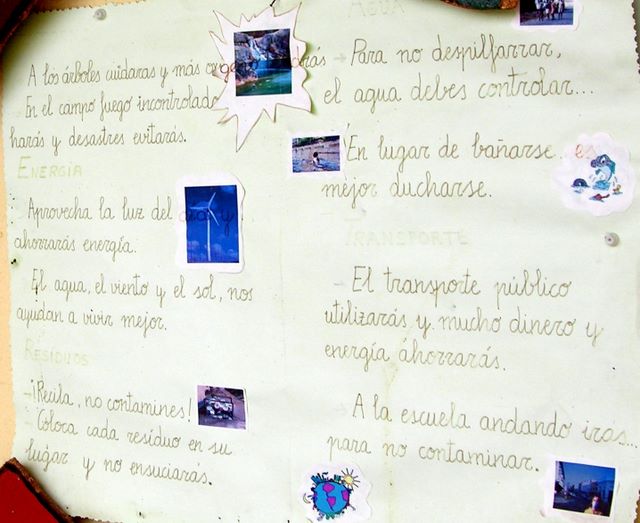 A los árboles cuidaras y más
En el campo fuego incontrolado
harás y desastres evitarás.
ENERGÍA
Aprovecha la luz del día y
ahorrarás energía.
El agua, el viento y el sol, nos
ayudan a vivir mejor.
RESIDUOS
- ¡Recila, no contamines!
- Coloca cada residuo en su
lugar y no ensuciarás.
AGUA
- Para no despilfarrar,
el agua debes controlar...
En lugar de bañarse... es
mejor ducharse.
TRANSPORTE
- El transporte público
utilizarás y mucho dinero y
energía áhorrarás.
- A la escuela andando iras...
para no contaminar.